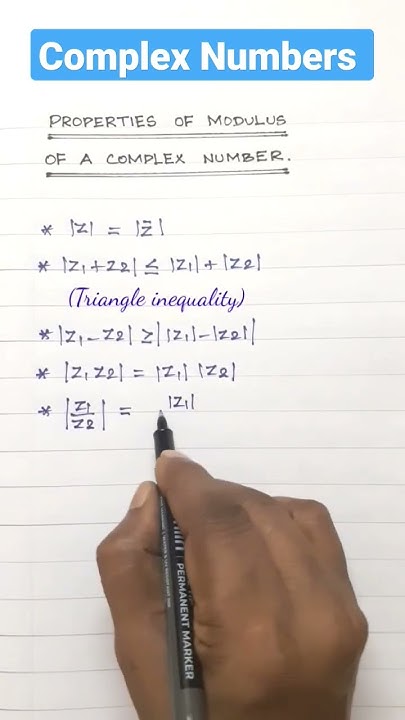 Complex Numbers
PROPERTIES OF MODULUS
OF A COMPLEX NUMBER.
* |z| = |z̄|
* |z1+z2| ≤ |z1|+|z2|
(Triangle inequality)
* |z1-z2| ≥ ||z1|-|z2||
* |z1 z2| = |z1| |z2|
* |z1/z2| = |z1|
PERMANENT MARKER